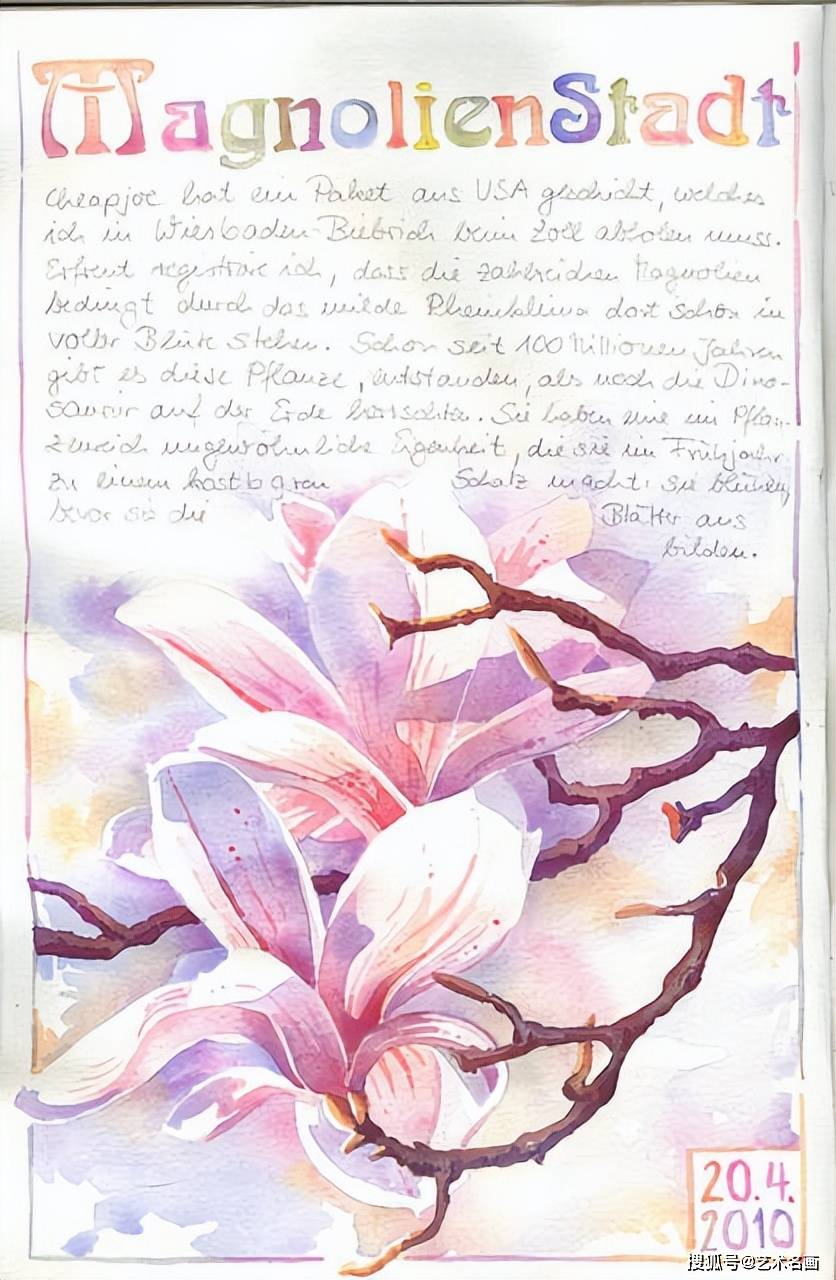 Magnolienstadt
Cheapjoe hat ein Paket aus USA geschickt, welches
ich in Wiesbaden-Biebrich beim Zoll abholen muss.
Erfreut registriere ich, dass die zahlreichen Magnolien
bedingt durch das milde Rheinklima dort schon in
voller Blüte stehen. Schon seit 100 Millionen Jahren
gibt es diese Pflanze, entstanden, als noch die Dino-
saurier auf der Erde herrschten. Sie haben eine im Pflan-
zenreich ungewöhnliche Eigenheit, die sie im Frühjahr
zu einem kostbaren Schatz macht: sie blühen,
bevor sie die Blätter aus
bilden.
20.4.
2010
搜狐号@艺术名画